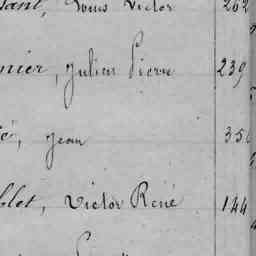 sant, Louis Victor 262
nier, Julien Pierre 239
é, Jean 35
blot, Victor René 144